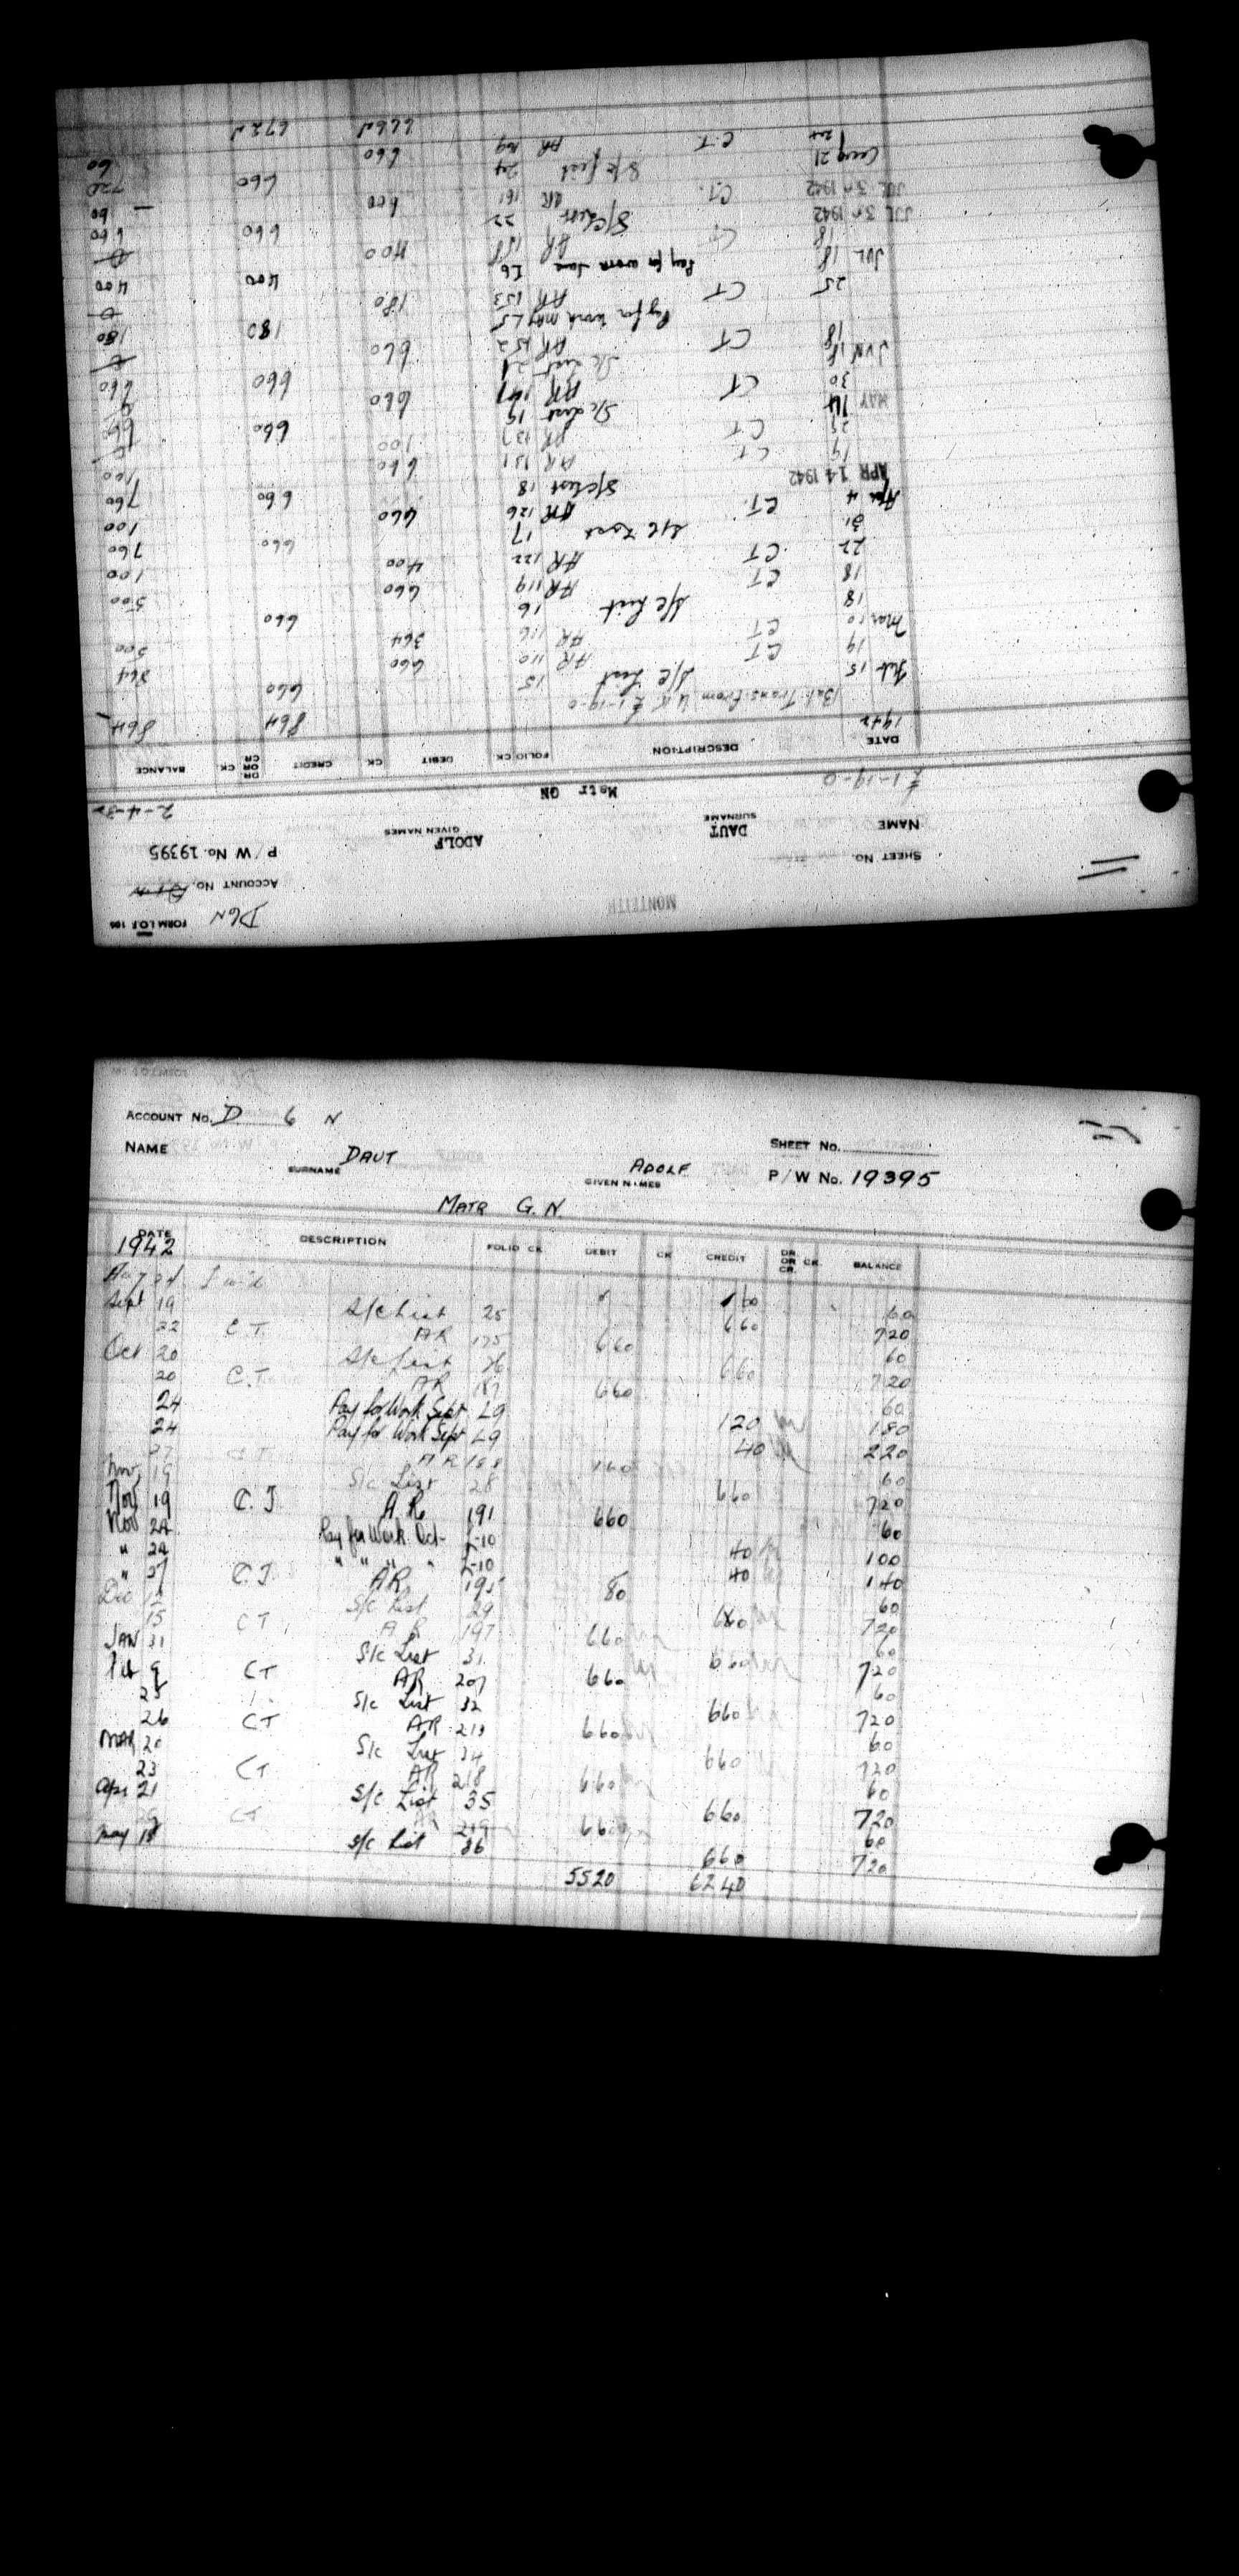 D6N FORM LOI 106
ACCOUNT No.
MONTEITH
SHEET No. P/W No. 19395
NAME DAUT ADOLF
SURNAME GIVEN NAMES
£1-19-0 Matr GN 2-4-3
DATE DESCRIPTION FOLIO CK DEBIT CK CREDIT DR OR CR CK BALANCE
1942 Bal. Trans. from U.K. £1-19-0 864 864
Feb 15 S/c List 15 660
19 CT AR 110 660 864
Mar 10 CT AR 116 364 500
18 S/c List 16 660
18 CT AR 119 660 500
22 CT AR 122 400 100
31 S/c List 17 660 760
Apr 4 CT. AR 126 660 100
APR 14 1942 S/c List 18 660 760
19 CT AR 131 660 100
25 CT AR 137 100
MAY 14 S/c List 19 660 660
30 CT AR 141 660
JUN 18 S/c List 21 660 660
18 CT AR 152 660
Pay for work May L5 180 180
25 CT AR 153 180
JUL 18 Pay for work June L6 400 400
18 CT AR 158 400
JUL 30 1942 S/c List 22 660 660
JUL 30 1942 CT. AR 161 600 60
Aug 21 S/c List 24 660 720
C.T. AR 169 660 60
ACCOUNT No. D 6 N
NAME DAUT ADOLF SHEET No.
SURNAME GIVEN NAMES P/W No. 19395
MATR G.N.
DATE DESCRIPTION FOLIO CK DEBIT CK CREDIT DR OR CR. CR. BALANCE
1942
Aug 24 60 60
Sept 19 S/c List 25 660 720
22 C.T. AR 175 660 60
Oct 20 S/c List 26 660 720
20 C.T. AR 187 660 60
24 Pay for Work Sept L9 120 180
24 Pay for Work Sept L9 40 220
27 C.T. AR 188 160 60
Nov. 19 S/c List 28 660 720
Nov 19 C.T. AR 191 660 60
Nov 24 Pay for Work Oct- L-10 40 100
" 24 " " " " L-10 40 140
" 27 C.T. AR 195 80 60
Dec S/c List 29 660 720
15 CT AR 197 660 60
JAN 31 S/c List 31 660 720
Feb 9 CT AR 207 660 60
25 S/c List 32 660 720
26 CT AR 213 660 60
MAR 20 S/c List 34 660 720
23 CT AR 218 660 60
Apr 21 S/c List 35 660 720
CT 219 660 60
May 18 S/c List 36 660 720
5520 6240